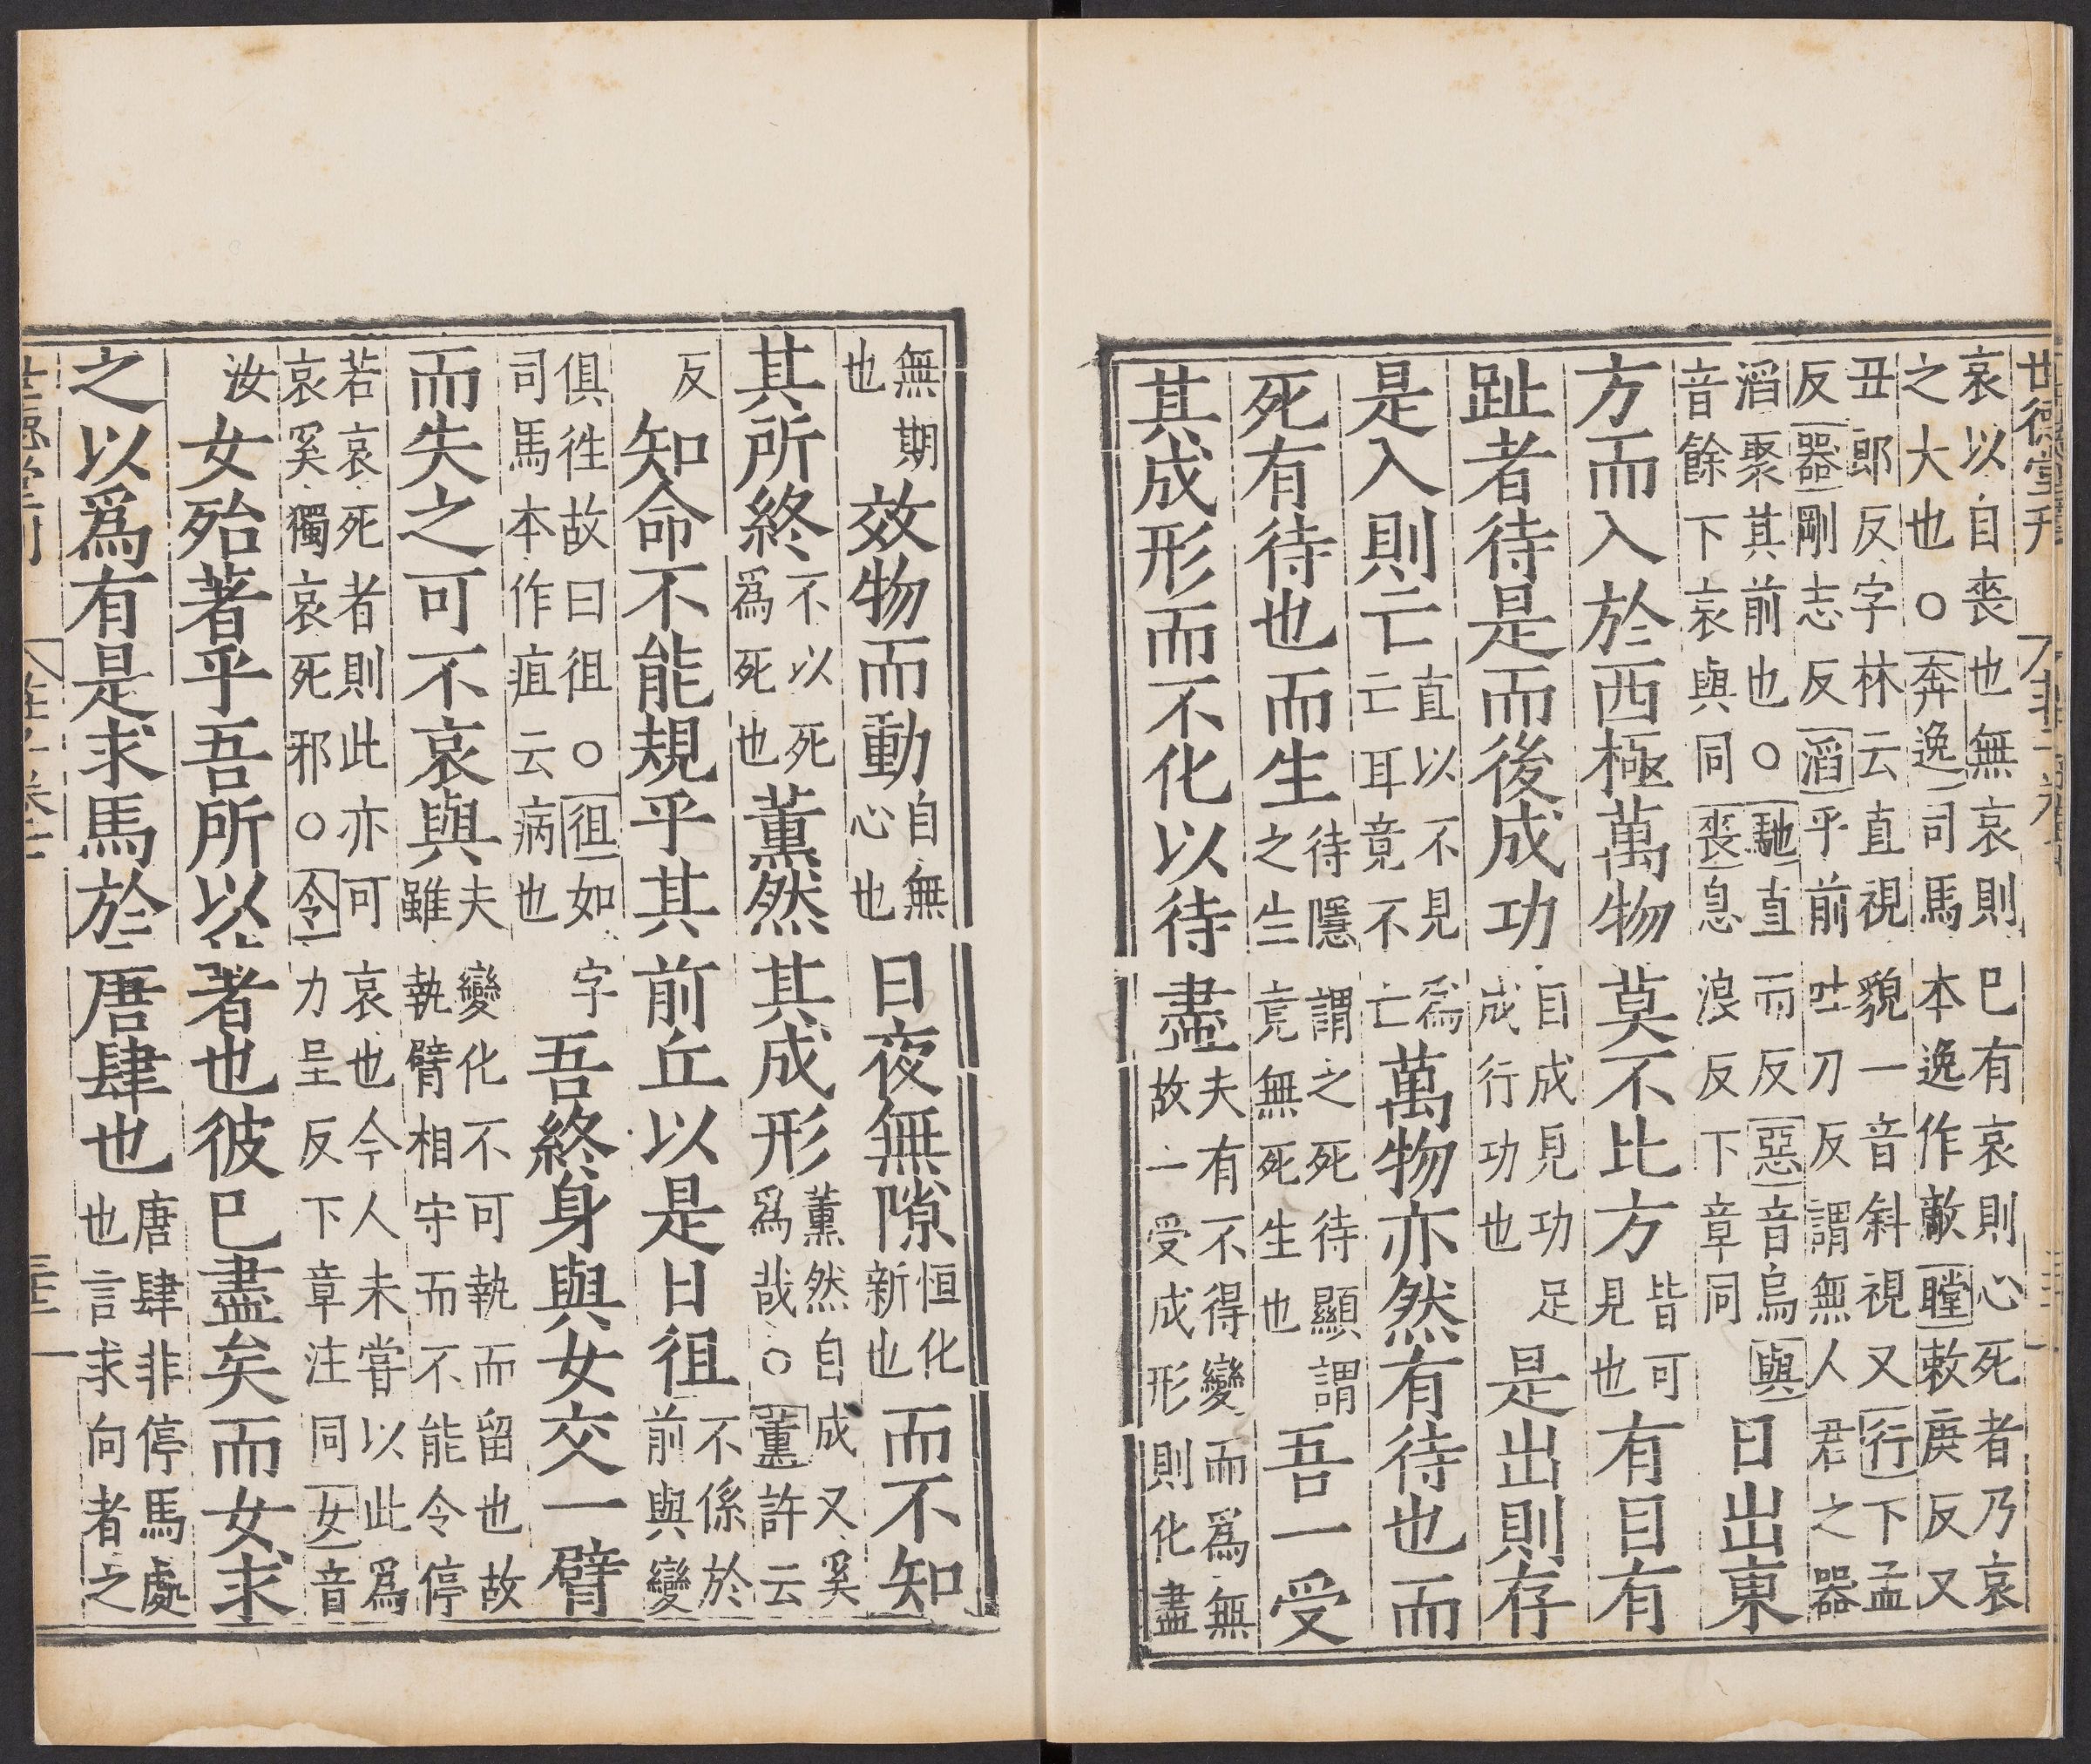 世德堂刊
哀以自喪也無哀則巳有哀則心死者乃哀
之大也○奔逸司馬本逸作徹瞠敕庚反又
丑郎反字林云直視貌一音斜視又行下孟
反器剛志反滔乎前吐刀反謂無人君之器
滔聚其前也○馳直而反惡音烏與
音餘下哀與同喪息浪反下章同日出東
方而入於西極萬物莫不比方皆可見也有目有
趾者待是而後成功自成見功足成行功也是出則存
是入則亡直以不見爲亡耳竟不亡萬物亦然有待也而
死有待也而生待隱謂之死待顯謂之生竟無死生也吾一受
其成形而不化以待盡夫有不得變而爲無故一受成形則化盡
無期也效物而動自無心也日夜無隙恒化新也而不知
其所終不以死爲死也薰然其成形薰然自成又奚爲哉○薰許云
反知命不能規乎其前丘以是日徂不係於前與變
俱往故曰徂○徂如字司馬本作疽云病也吾終身與女交一臂
而失之可不哀與夫變化不可執而留也故雖執臂相守而不能令停
若哀死者則此亦可哀也今人未嘗以此爲
哀奚獨哀死邪○令力呈反下章注同女音
汝女殆著乎吾所以著者也彼巳盡矣而女求
之以爲有是求馬於唐肆也唐肆非停馬處也言求向者之
世德堂刊